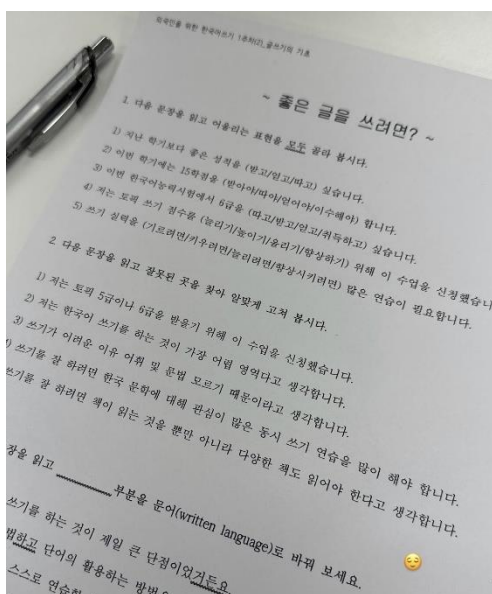 외국인을 위한 한국어쓰기 1주차(2)_글쓰기의 기초
~ 좋은 글을 쓰려면? ~
1. 다음 문장을 읽고 어울리는 표현을 모두 골라 봅시다.
1) 지난 학기보다 좋은 성적을 (받고/얻고/따고) 싶습니다.
2) 이번 학기에는 15학점을 (받아야/따야/얻어야/이수해야) 합니다.
3) 이번 한국어능력시험에서 6급을 (따고/받고/얻고/취득하고) 싶습니다.
4) 저는 토픽 쓰기 점수를 (늘리기/높이기/올리기/향상하기) 위해 이 수업을 신청했습니
5) 쓰기 실력을 (기르려면/키우려면/늘리려면/향상시키려면) 많은 연습이 필요합니다.
2. 다음 문장을 읽고 잘못된 곳을 찾아 알맞게 고쳐 봅시다.
1) 저는 토픽 5급이나 6급을 받을기 위해 이 수업을 신청했습니다.
2) 저는 한국어 쓰기를 하는 것이 가장 어립 영역다고 생각합니다.
3) 쓰기가 어려운 이유 어휘 및 문법 모르기 때문이라고 생각합니다.
) 쓰기를 잘 하려면 한국 문학에 대해 관심이 많은 동시 쓰기 연습을 많이 해야 합니다.
쓰기를 잘 하려면 책이 읽는 것을 뿐만 아니라 다양한 책도 읽어야 한다고 생각합니다.
장을 읽고 ______ 부분을 문어(written language)로 바꿔 보세요.
쓰기를 하는 것이 제일 큰 단점이었거든요
법하고 단어의 활용하는 방법
스스로 연습